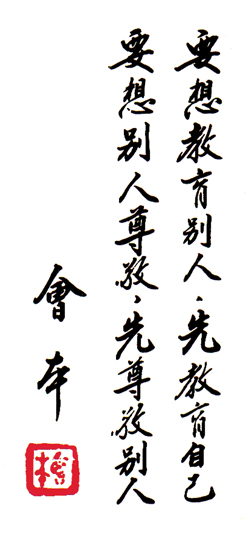 要想教育别人、先教育自己
要想别人尊敬、先尊敬别人
會本